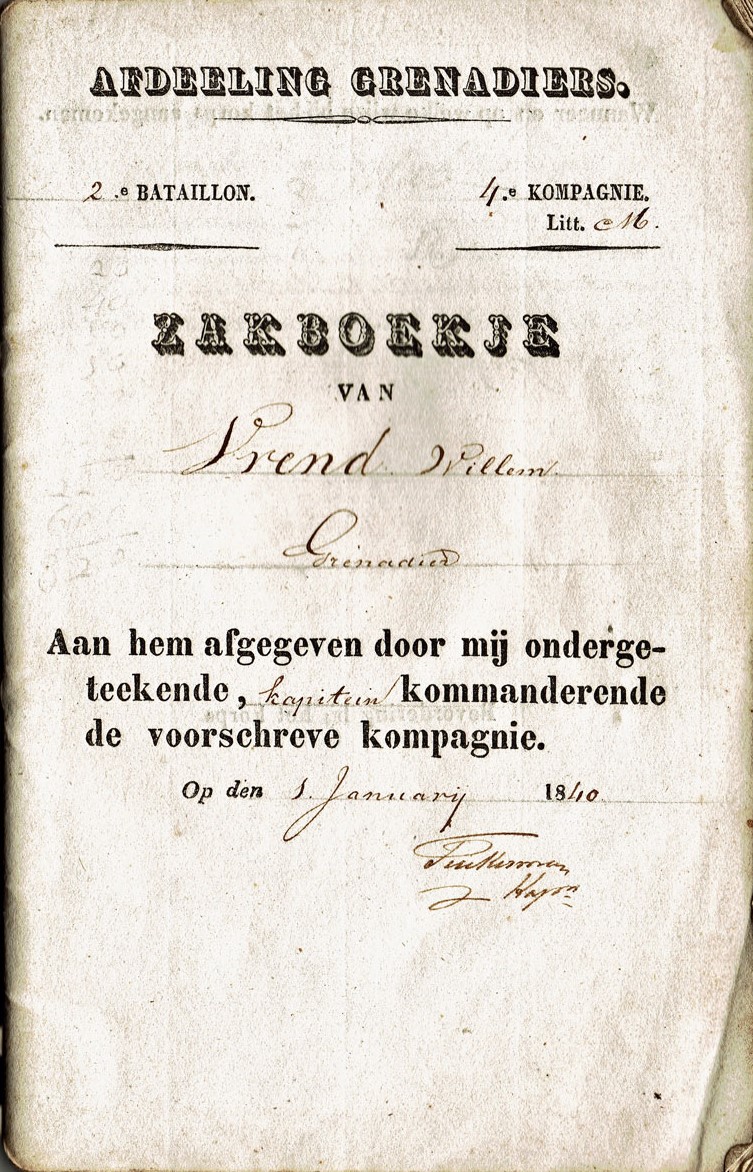 AFDEELING GRENADIERS.
2.e BATAILLON.
4.e KOMPAGNIE.
Litt. M.
ZAKBOEKJE
VAN
Vrend Willem
Grenadier
Aan hem afgegeven door mij onderge-
teekende, kapitein kommanderende
de voorschreve kompagnie.
Op den 1 January 1840